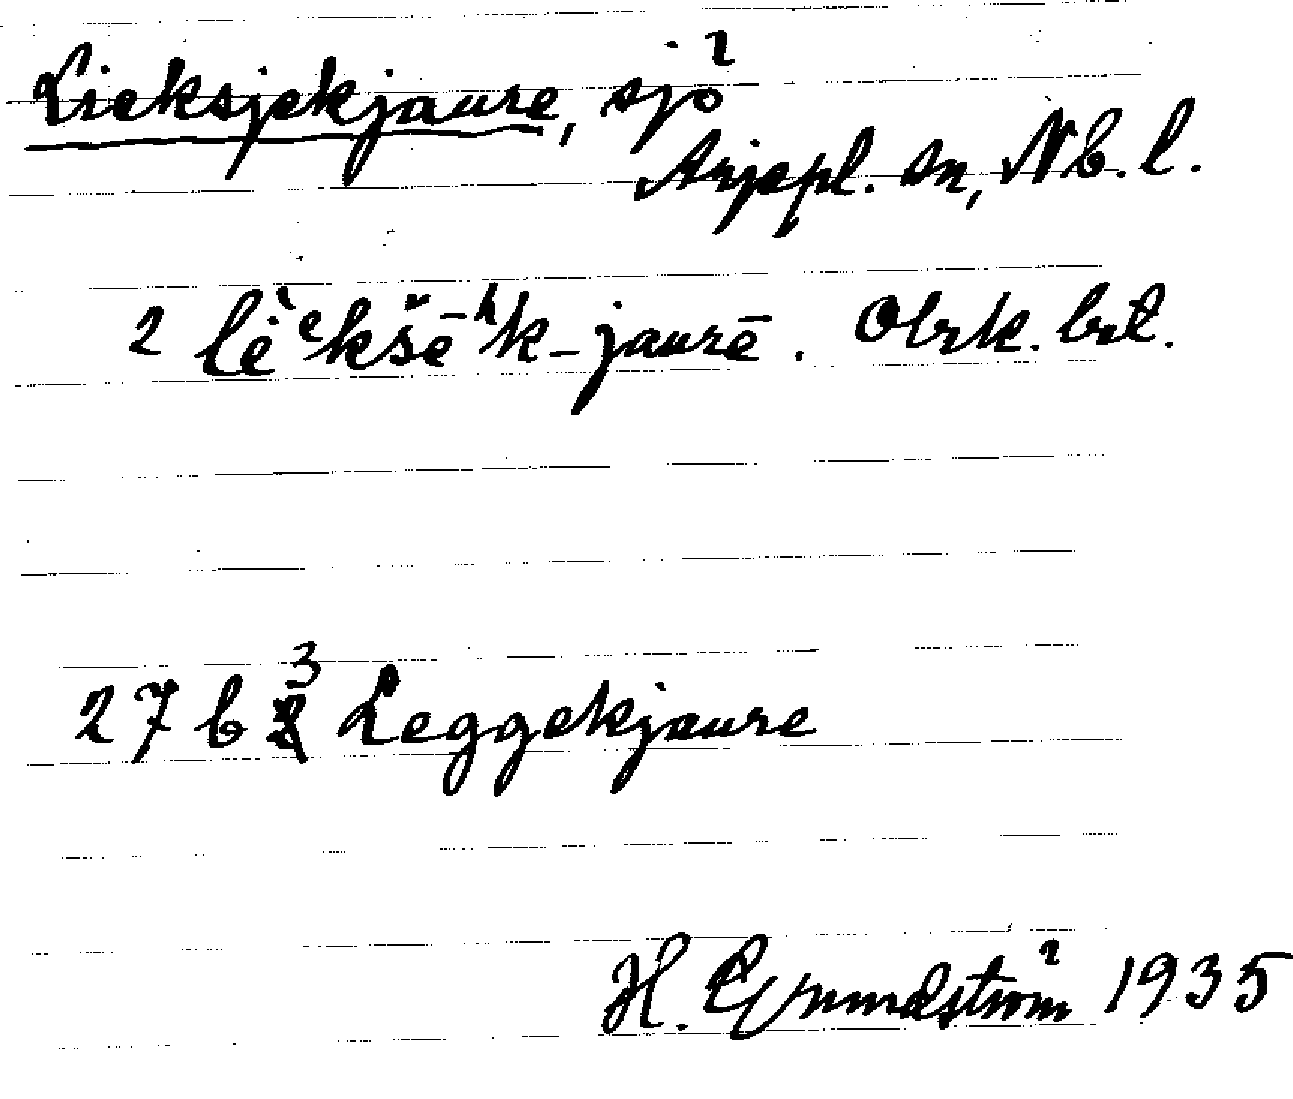 Lieksjekjaure, sjö
Arjepl. sn, Nb. l.
2 lẹ̀ᵉkšē ʰk-jaurē. Obrk. brt.
27 b 3 Leggekjaure
H. Grundström 1935